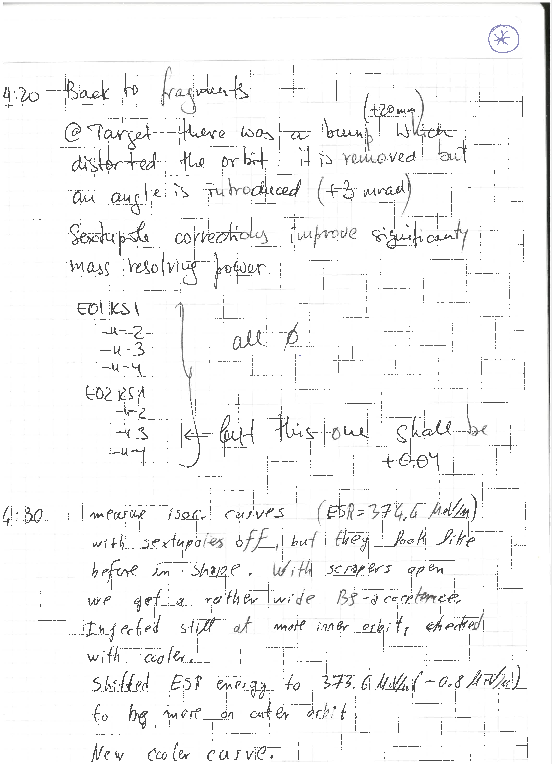 *
4:20 Back to fragments
(+20mm)
@ Target there was a bump which
distorted the orbit it is removed but
an angle is introduced (+3 mrad)
Sextupole corrections improve significanty
mass resolving power
E01KS1
-"-2
-"-3
-"-4
all ø
E02KS1
-"-2
-"-3 ← left this one shall be
-"-4 +0.04
4:30 measure isoc. curves (ESR=374.6 MeV/u)
with sextupoles off, but they look like
before in shape. With scrapers open
we get a rather wide Bρ-acceptance.
Injected still at more inner orbit, checked
with cooler.
Shifted ESR energy to 373.6 MeV/u (-0.8 MeV/u)
to be more on outer orbit
New cooler curve.